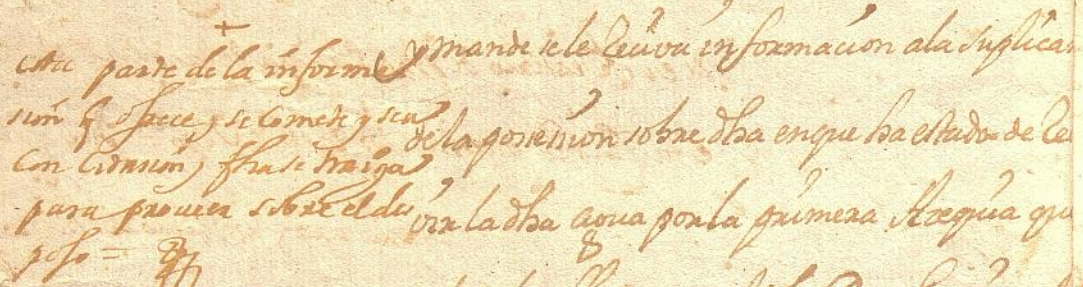 esta parte de la informa
sion q ofrece, y se comete y sea
con citasion, y fha se traiga
para proveer sobre el des
pojo =
y mande se le reciva informacion a la suplican
de la posesion sobre dha en que ha estado de re
civir la dha agua por la primera Asequia qu